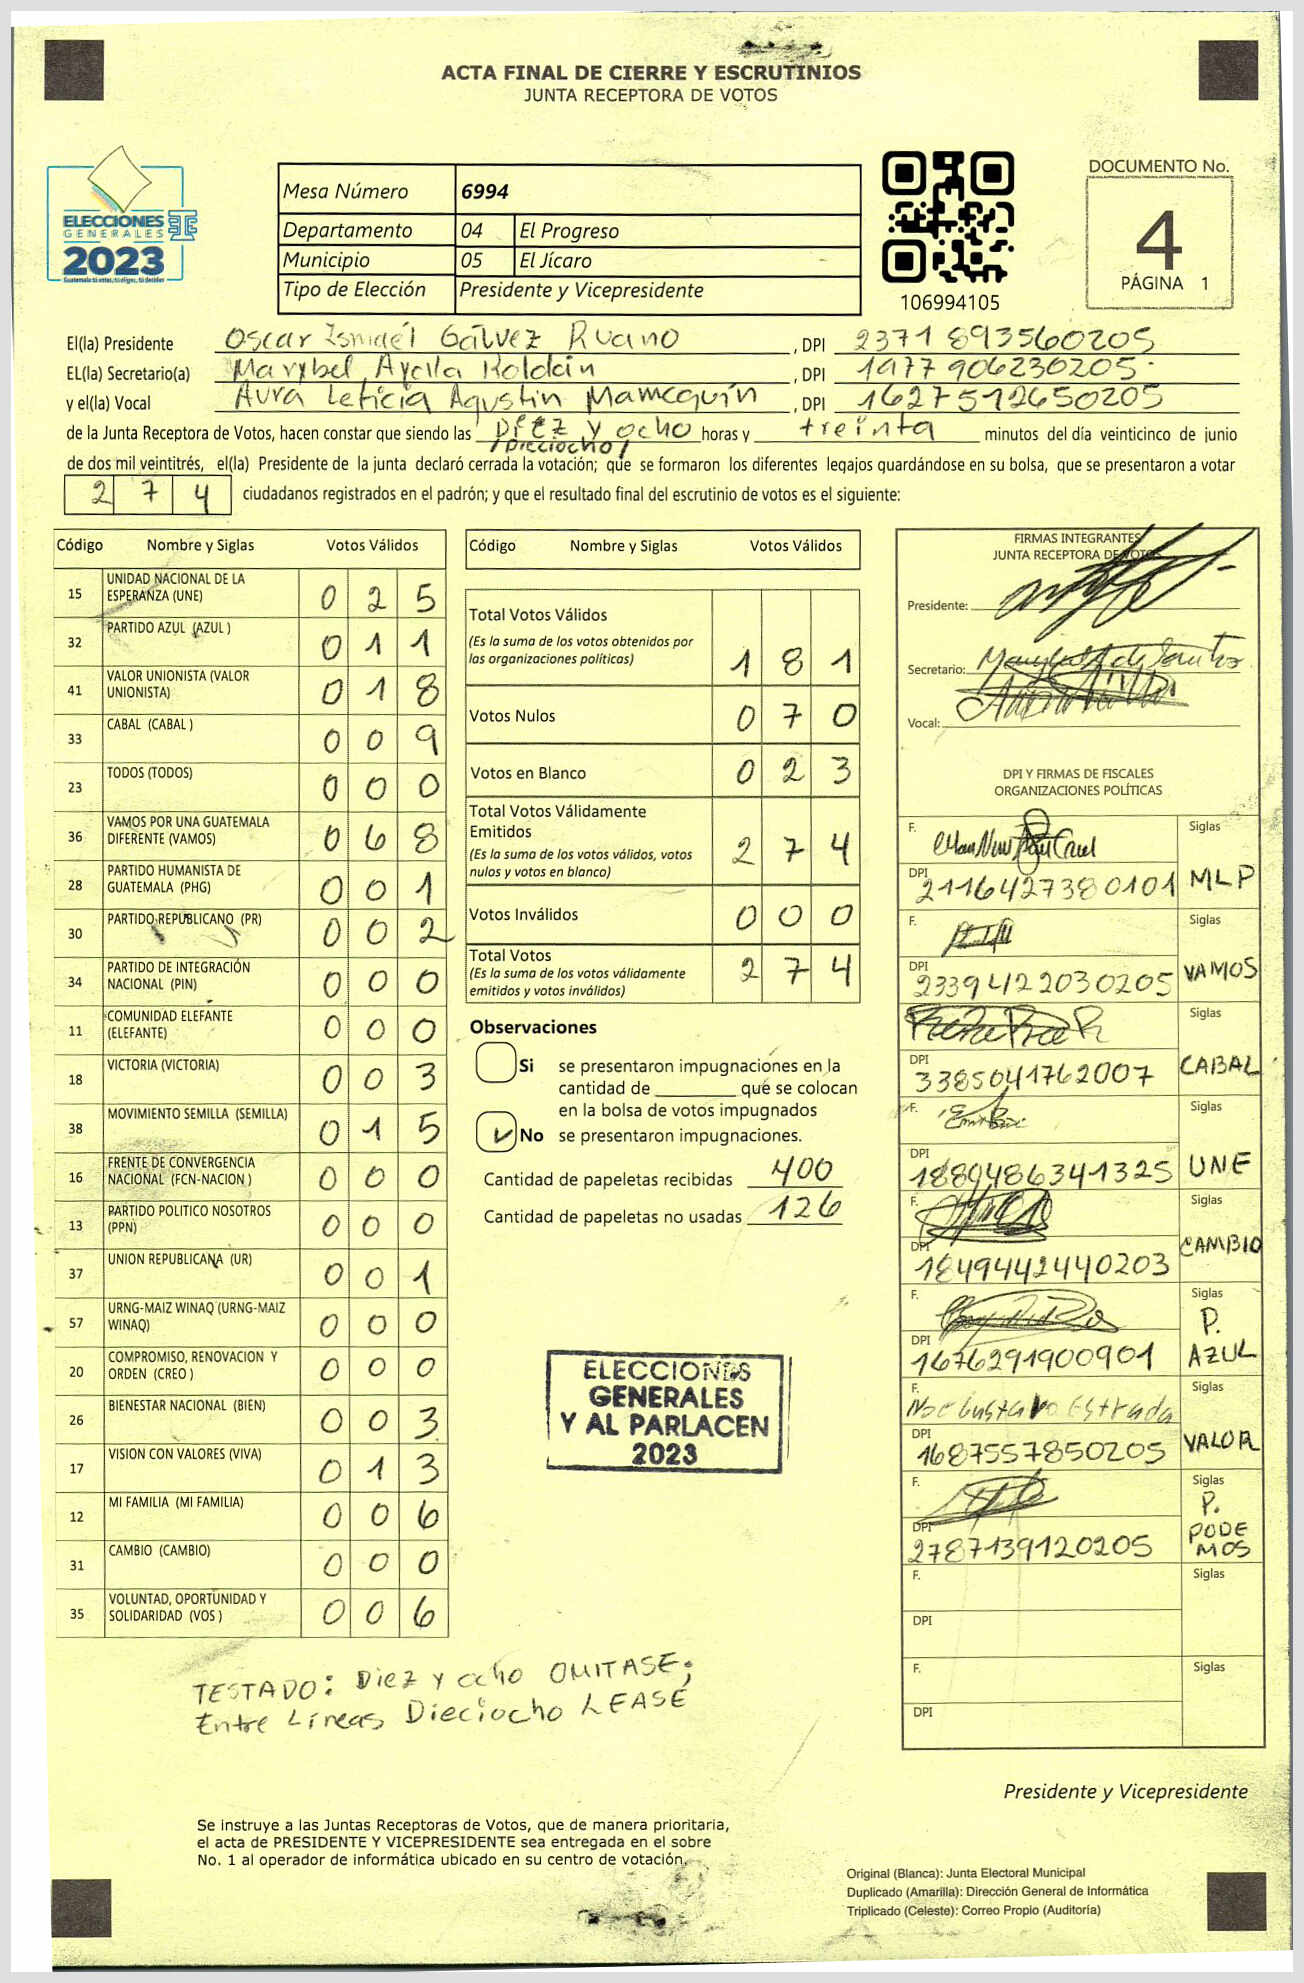 ACTA FINAL DE CIERRE Y ESCRUTINIOS
JUNTA RECEPTORA DE VOTOS
ELECCIONES
GENERALES
2023
Guatemala tú votas, tú eliges, tú decides
Mesa Número 6994
Departamento 04 El Progreso
Municipio 05 El Jícaro
Tipo de Elección Presidente y Vicepresidente
106994105
DOCUMENTO No.
4
PÁGINA 1
El(la) Presidente Oscar Ismaél Gálvez Ruano , DPI 2371893560205
EL(la) Secretario(a) Marybel Ayala Roldán , DPI 1977906230205
y el(la) Vocal Aura Leticia Agustin Mamequín , DPI 1627512650205
de la Junta Receptora de Votos, hacen constar que siendo las Diez y ocho horas y treinta minutos del día veinticinco de junio
/Dieciocho/
de dos mil veintitrés, el(la) Presidente de la junta declaró cerrada la votación; que se formaron los diferentes legajos guardándose en su bolsa, que se presentaron a votar
274 ciudadanos registrados en el padrón; y que el resultado final del escrutinio de votos es el siguiente:
Código Nombre y Siglas Votos Válidos
15 UNIDAD NACIONAL DE LA ESPERANZA (UNE) 0 2 5
32 PARTIDO AZUL (AZUL ) 0 1 1
41 VALOR UNIONISTA (VALOR UNIONISTA) 0 1 8
33 CABAL (CABAL ) 0 0 9
23 TODOS (TODOS) 0 0 0
36 VAMOS POR UNA GUATEMALA DIFERENTE (VAMOS) 0 6 8
28 PARTIDO HUMANISTA DE GUATEMALA (PHG) 0 0 1
30 PARTIDO REPUBLICANO (PR) 0 0 2
34 PARTIDO DE INTEGRACIÓN NACIONAL (PIN) 0 0 0
11 COMUNIDAD ELEFANTE (ELEFANTE) 0 0 0
18 VICTORIA (VICTORIA) 0 0 3
38 MOVIMIENTO SEMILLA (SEMILLA) 0 1 5
16 FRENTE DE CONVERGENCIA NACIONAL (FCN-NACION ) 0 0 0
13 PARTIDO POLITICO NOSOTROS (PPN) 0 0 0
37 UNION REPUBLICANA (UR) 0 0 1
57 URNG-MAIZ WINAQ (URNG-MAIZ WINAQ) 0 0 0
20 COMPROMISO, RENOVACION Y ORDEN (CREO ) 0 0 0
26 BIENESTAR NACIONAL (BIEN) 0 0 3
17 VISION CON VALORES (VIVA) 0 1 3
12 MI FAMILIA (MI FAMILIA) 0 0 6
31 CAMBIO (CAMBIO) 0 0 0
35 VOLUNTAD, OPORTUNIDAD Y SOLIDARIDAD (VOS ) 0 0 6
Código Nombre y Siglas Votos Válidos
Total Votos Válidos
(Es la suma de los votos obtenidos por
las organizaciones políticas) 1 8 1
Votos Nulos 0 7 0
Votos en Blanco 0 2 3
Total Votos Válidamente
Emitidos
(Es la suma de los votos válidos, votos
nulos y votos en blanco) 2 7 4
Votos Inválidos 0 0 0
Total Votos
(Es la suma de los votos válidamente
emitidos y votos inválidos) 2 7 4
Observaciones
Si se presentaron impugnaciones en la
cantidad de que se colocan
en la bolsa de votos impugnados
No se presentaron impugnaciones.
Cantidad de papeletas recibidas 400
Cantidad de papeletas no usadas 126
ELECCIONES
GENERALES
Y AL PARLACEN
2023
FIRMAS INTEGRANTES
JUNTA RECEPTORA DE VOTOS
Presidente:
Secretario:
Vocal:
DPI Y FIRMAS DE FISCALES
ORGANIZACIONES POLÍTICAS
F. Siglas
DPI 2116427380101 MLP
F. Siglas
DPI 2339422030205 VAMOS
Siglas
DPI 3385041762007 CABAL
F. Siglas
DPI 1889486341325 UNE
F. Siglas
DPI 1849442440203 CAMBIO
F. Siglas
DPI 1676291900901 P. AZUL
F. Noe Gustavo Estrada Siglas
DPI 1687557850205 VALOR
F. Siglas
DPI 2787139120205 P. PODEMOS
F. Siglas
DPI
F. Siglas
DPI
TESTADO: Diez y ocho OMITASE;
Entre Líneas Dieciocho LEASE
Presidente y Vicepresidente
Se instruye a las Juntas Receptoras de Votos, que de manera prioritaria,
el acta de PRESIDENTE Y VICEPRESIDENTE sea entregada en el sobre
No. 1 al operador de informática ubicado en su centro de votación.
Original (Blanca): Junta Electoral Municipal
Duplicado (Amarilla): Dirección General de Informática
Triplicado (Celeste): Correo Propio (Auditoría)